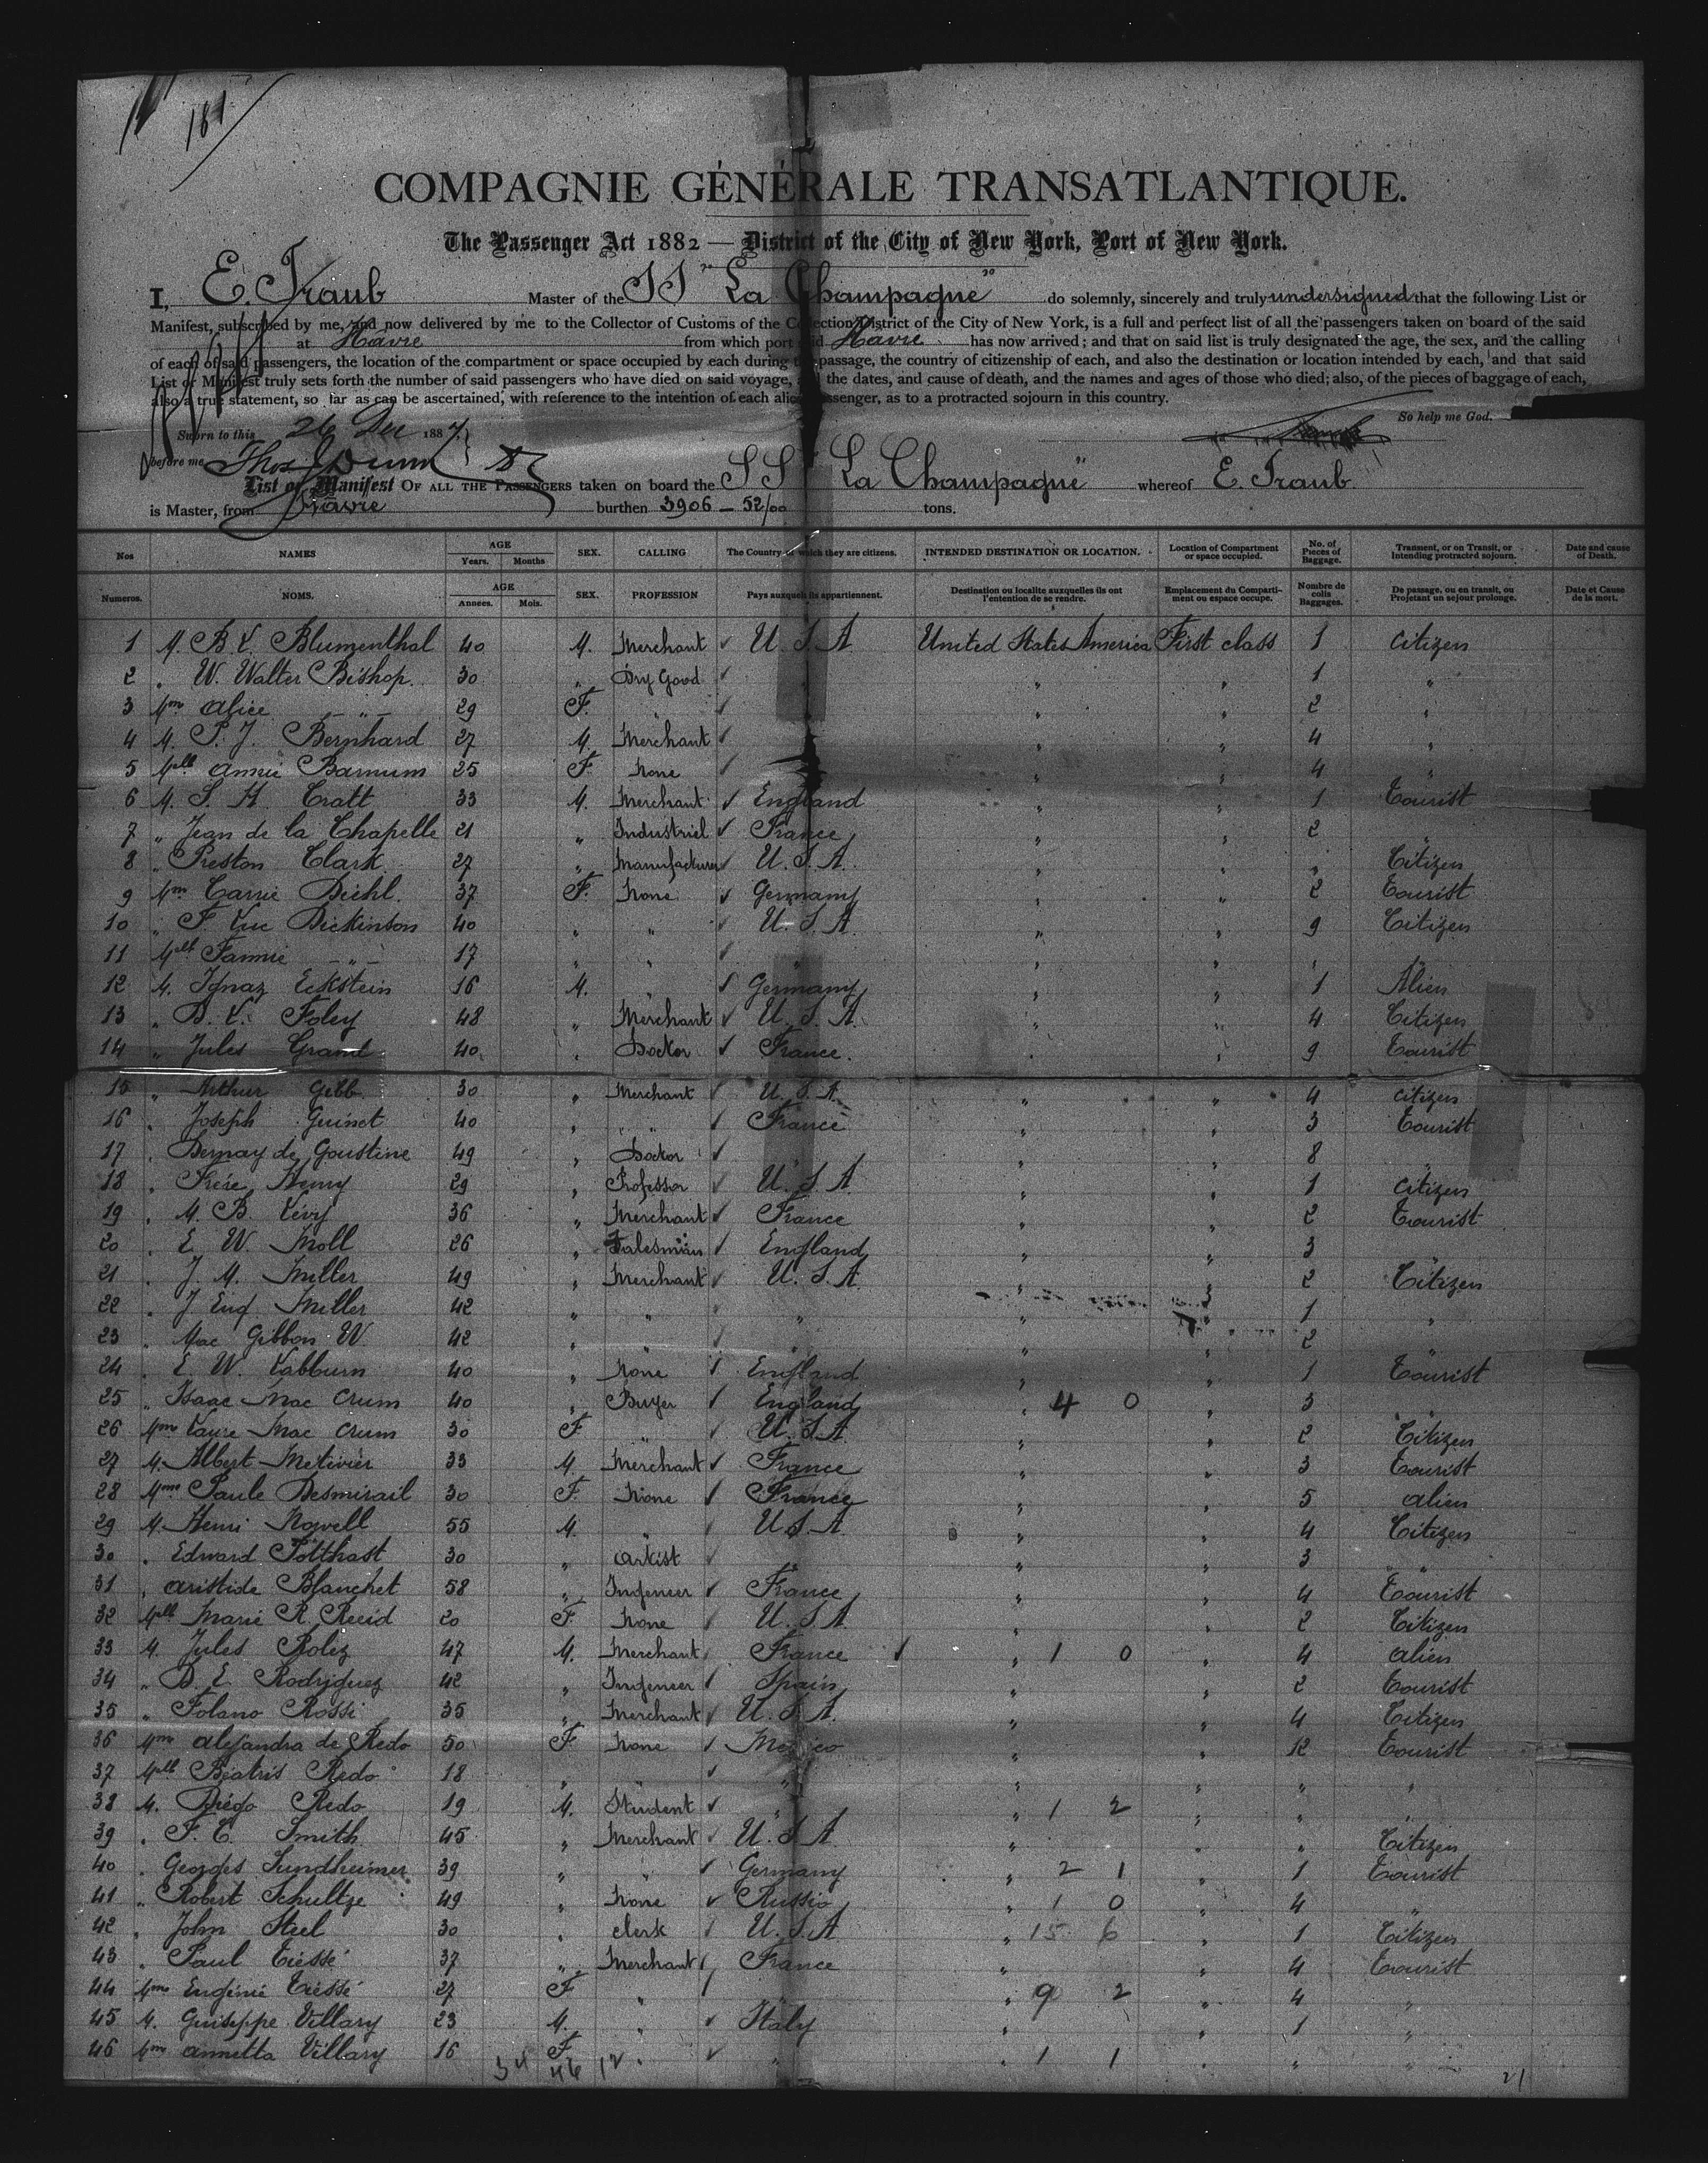 181
COMPAGNIE GÉNÉRALE TRANSATLANTIQUE.
The Passenger Act 1882 — District of the City of New York, Port of New York.
I, E. Traub Master of the SS "La Champagne" do solemnly, sincerely and truly undersigned that the following List or
Manifest, subscribed by me, and now delivered by me to the Collector of Customs of the Collection District of the City of New York, is a full and perfect list of all the passengers taken on board of the said
at Havre from which port said Havre has now arrived; and that on said list is truly designated the age, the sex, and the calling
of each of said passengers, the location of the compartment or space occupied by each during the passage, the country of citizenship of each, and also the destination or location intended by each, and that said
List or Manifest truly sets forth the number of said passengers who have died on said voyage, and the dates, and cause of death, and the names and ages of those who died; also, of the pieces of baggage of each,
also a true statement, so far as can be ascertained, with reference to the intention of each alien passenger, as to a protracted sojourn in this country.
So help me God.
Sworn to this 26 Dec 1887
before me Thos Dunn
List or Manifest OF ALL THE PASSENGERS taken on board the SS La Champagne" whereof E. Traub
is Master, from Havre burthen 3906 – 52/00 tons.
Nos NAMES AGE Years. Months SEX. CALLING The Country of which they are citizens. INTENDED DESTINATION OR LOCATION. Location of Compartment or space occupied. No. of Pieces of Baggage. Transient, or on Transit, or Intending protracted sojourn. Date and cause of Death.
Numeros. NOMS. AGE Annees. Mois. SEX. PROFESSION Pays auxquels ils appartiennent. Destination ou localite auxquelles ils ont l'entention de se rendre. Emplacement du Comparti-ment ou espace occupe. Nombre de colis Baggages. De passage, ou en transit, ou Projetant un sejour prolonge. Date et Cause de la mort.
1 M. B. V. Blumenthal 40 M. Merchant U.S.A United States America First class 1 Citizen
2 " W. Walter Bishop. 30 " Dry Good " " 1 "
3 Mme Alice — " — 29 F. " " " 2 "
4 M. P. J. Bernhard 27 M. Merchant " " 4 "
5 Mlle Annie Barnum 25 F. None " " 4 "
6 M. S. H. Cratt 33 M. Merchant England " " 1 Tourist
7 " Jean de la Chapelle 21 " Industriel France " " 2 "
8 " Preston Clark 27 " Manufacturer U.S.A. " " " Citizen
9 Mme Carrie Diehl. 37 F. None Germany " " 2 Tourist
10 " F. Luc Dickinson 40 " " U.S.A. " " 9 Citizen
11 Mlle Fannie — " — 17 " " " " " " "
12 M. Ignaz Eckstein 16 M. " Germany " " 1 Alien
13 " B. V. Foley 48 " Merchant U.S.A. " " 4 Citizen
14 " Jules Grand 40 " Doctor France. " " 9 Tourist
15 " Arthur Gibb 30 " Merchant U.S.A. " " 4 Citizen
16 " Joseph Guinet 40 " " France " " 3 Tourist
17 " Dernay de Goustine 49 " Doctor " " " 8 "
18 " Frére Henry 29 " Professor U.S.A. " " 1 Citizen
19 " M. B. Lévy 36 " Merchant France " " 2 Tourist
20 " E. W. Moll 26 " Salesman England " " 3 "
21 " J. M. Miller 49 " Merchant U.S.A. " " 2 Citizen
22 " J Eug Miller 42 " " " " " 1 "
23 " Mac Gibbon W. 42 " " " " " 2 "
24 " E. W. Labburn 40 " None England " " 1 Tourist
25 " Isaac Mac Crum 40 " Buyer England " 4 0 " 3 "
26 Mme Laure Mac Crum 30 F. " U.S.A. " " 2 Citizen
27 M. Albert Metivier 33 M. Merchant France " " 3 Tourist
28 Mme Paule Desmirail 30 F. None France " " 5 Alien
29 M. Henri Nowell 55 M. " U.S.A. " " 4 Citizen
30 " Edward Potthast 30 " Artist " " " 3 "
31 " Aristide Blanchet 58 " Ingeneer France " " 4 Tourist
32 Mlle Marie R. Reeid 20 F. None U.S.A. " " 2 Citizen
33 M. Jules Rolez 47 M. Merchant France " 1 0 " 4 Alien
34 " D. E. Rodriguez 42 " Ingeneer Spain " " 2 Tourist
35 " Folano Rossi 35 " Merchant U.S.A. " " 4 Citizen
36 Mme Alejandra de Redo 50 F. None Mexico " " 12 Tourist
37 Mlle Béatris Redo 18 " " " " " " "
38 M. Diégo Redo 19 M. Student " " 1 2 " " "
39 " F. C. Smith 45 " Merchant U.S.A. " " " Citizen
40 " Georges Sundheimer 39 " " Germany " 2 1 " 1 Tourist
41 " Robert Schultze 49 " None Russia " 1 0 " 4 "
42 " John Steel 30 " Clerk U.S.A " 15 6 " 1 Citizen
43 " Paul Tiéssé 37 " Merchant France " " 4 Tourist
44 Mme Eugénie Tiéssé 27 F. " " " 9 2 " 4 "
45 M. Guiseppe Villary 23 M. " Italy " " 1 "
46 Mme Annetta Villary 16 F. " " " 1 1 " " "
34 46 12 21